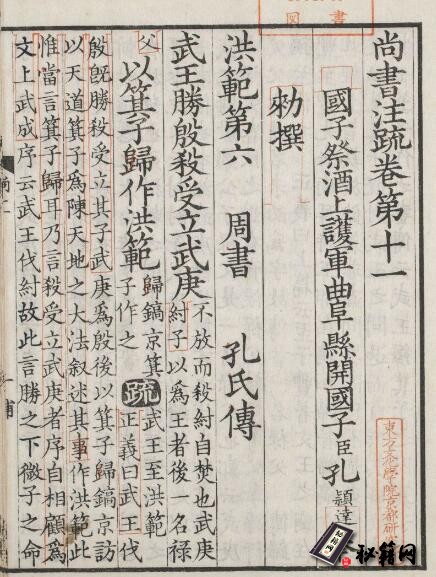 圖書
尚書注疏卷第十一
國子祭酒上護軍曲阜縣開國子臣孔穎達
勑撰
洪範第六 周書 孔氏傳
武王勝殷殺受立武庚 不放而殺紂自焚也武庚
紂子以爲王者後一名禄
父 以箕子歸作洪範 歸鎬京箕
子作之 疏 武王至洪範
正義曰武王伐
殷既勝殺受立其子武庚爲殷後以箕子歸鎬京訪
以天道箕子爲陳天地之大法叙述其事作洪範此
惟當言箕子歸耳乃言殺受立武庚者序自相顧爲
文上武成序云武王伐紂故此言勝之下微子之命
東方文化學院京都研
秘籍网